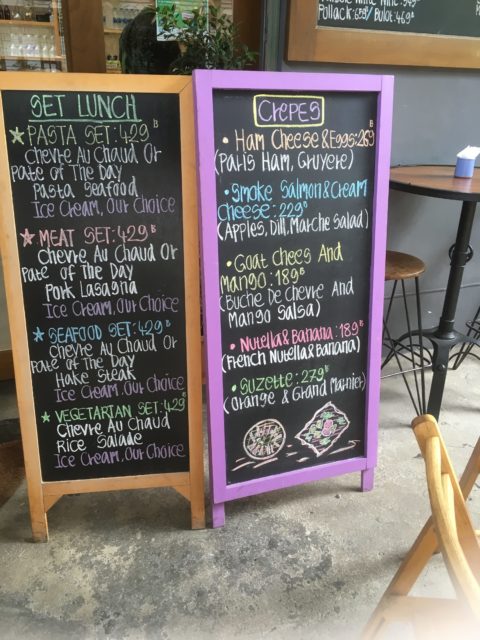 SET LUNCH
PASTA SET: 429 B
CHEVRE AU CHAUD OR
PATE OF THE DAY
PASTA SEAFOOD
ICE CREAM, OUR CHOICE
MEAT SET: 429 B
CHEVRE AU CHAUD OR
PATE OF THE DAY
PORK LASAGNA
ICE CREAM, OUR CHOICE
SEAFOOD SET: 429 B
CHEVRE AU CHAUD OR
PATE OF THE DAY
HAKE STEAK
ICE CREAM, OUR CHOICE
VEGETARIAN SET: 429 B
CHEVRE AU CHAUD
RICE SALADE
ICE CREAM, OUR CHOICE
CREPES
• HAM CHEESE & EGGS: 269 B
(PARIS HAM, GRUYERE)
• SMOKE SALMON & CREAM
CHEESE: 229 B
(APPLES, DILL, MARCHE SALAD)
• GOAT CHEES AND
MANGO: 189 B
(BUCHE DE CHEVRE AND
MANGO SALSA)
• NUTELLA & BANANA: 189 B
(FRENCH NUTELLA & BANANA)
• SUZETTE: 279 B
(ORANGE & GRAND MARNIER)